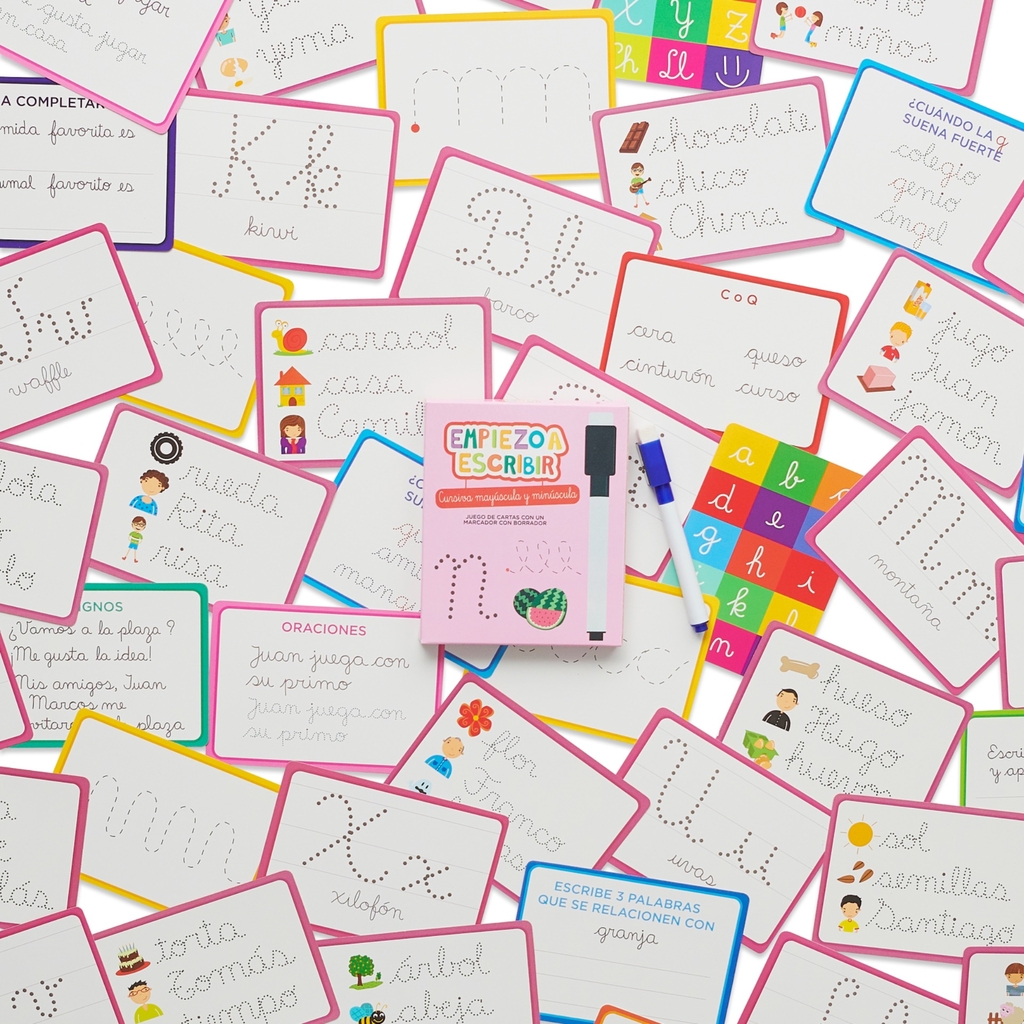 gusta jugar
en casa
gusta jugar
casa
yema
x y z
Ch Ll
niños
A COMPLETAR
favorita es
favorito es
K k
kiwi
m m m
B b
barco
chocolate
chico
China
¿CUÁNDO LA g
SUENA FUERTE
colegio
genio
ángel
W w
waffle
caracol
casa
C o Q
cera
queso
cinturón
curso
jugo
Juan
jamón
rueda
risa
EMPIEZO A
ESCRIBIR
Cursiva mayúscula y minúscula
JUEGO DE CARTAS CON UN
MARCADOR CON BORRADOR
n
a b
d e
g h i
k l
M m
montaña
¿Vamos a la plaza?
¡Me gusta la idea!
Mis amigos, Juan
Marcos me
la plaza
ORACIONES
Juan juega con
su primo
Juan juega con
su primo
hueso
Hugo
huevo
flor
Franco
U u
uvas
X x
xilofón
sol
semillas
Santiago
ESCRIBE 3 PALABRAS
QUE SE RELACIONEN CON
granja
torta
Tomás
tiempo
árbol
abeja